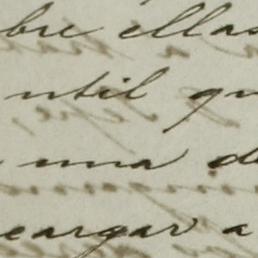 bre ellas
util qu
una de
cargar a